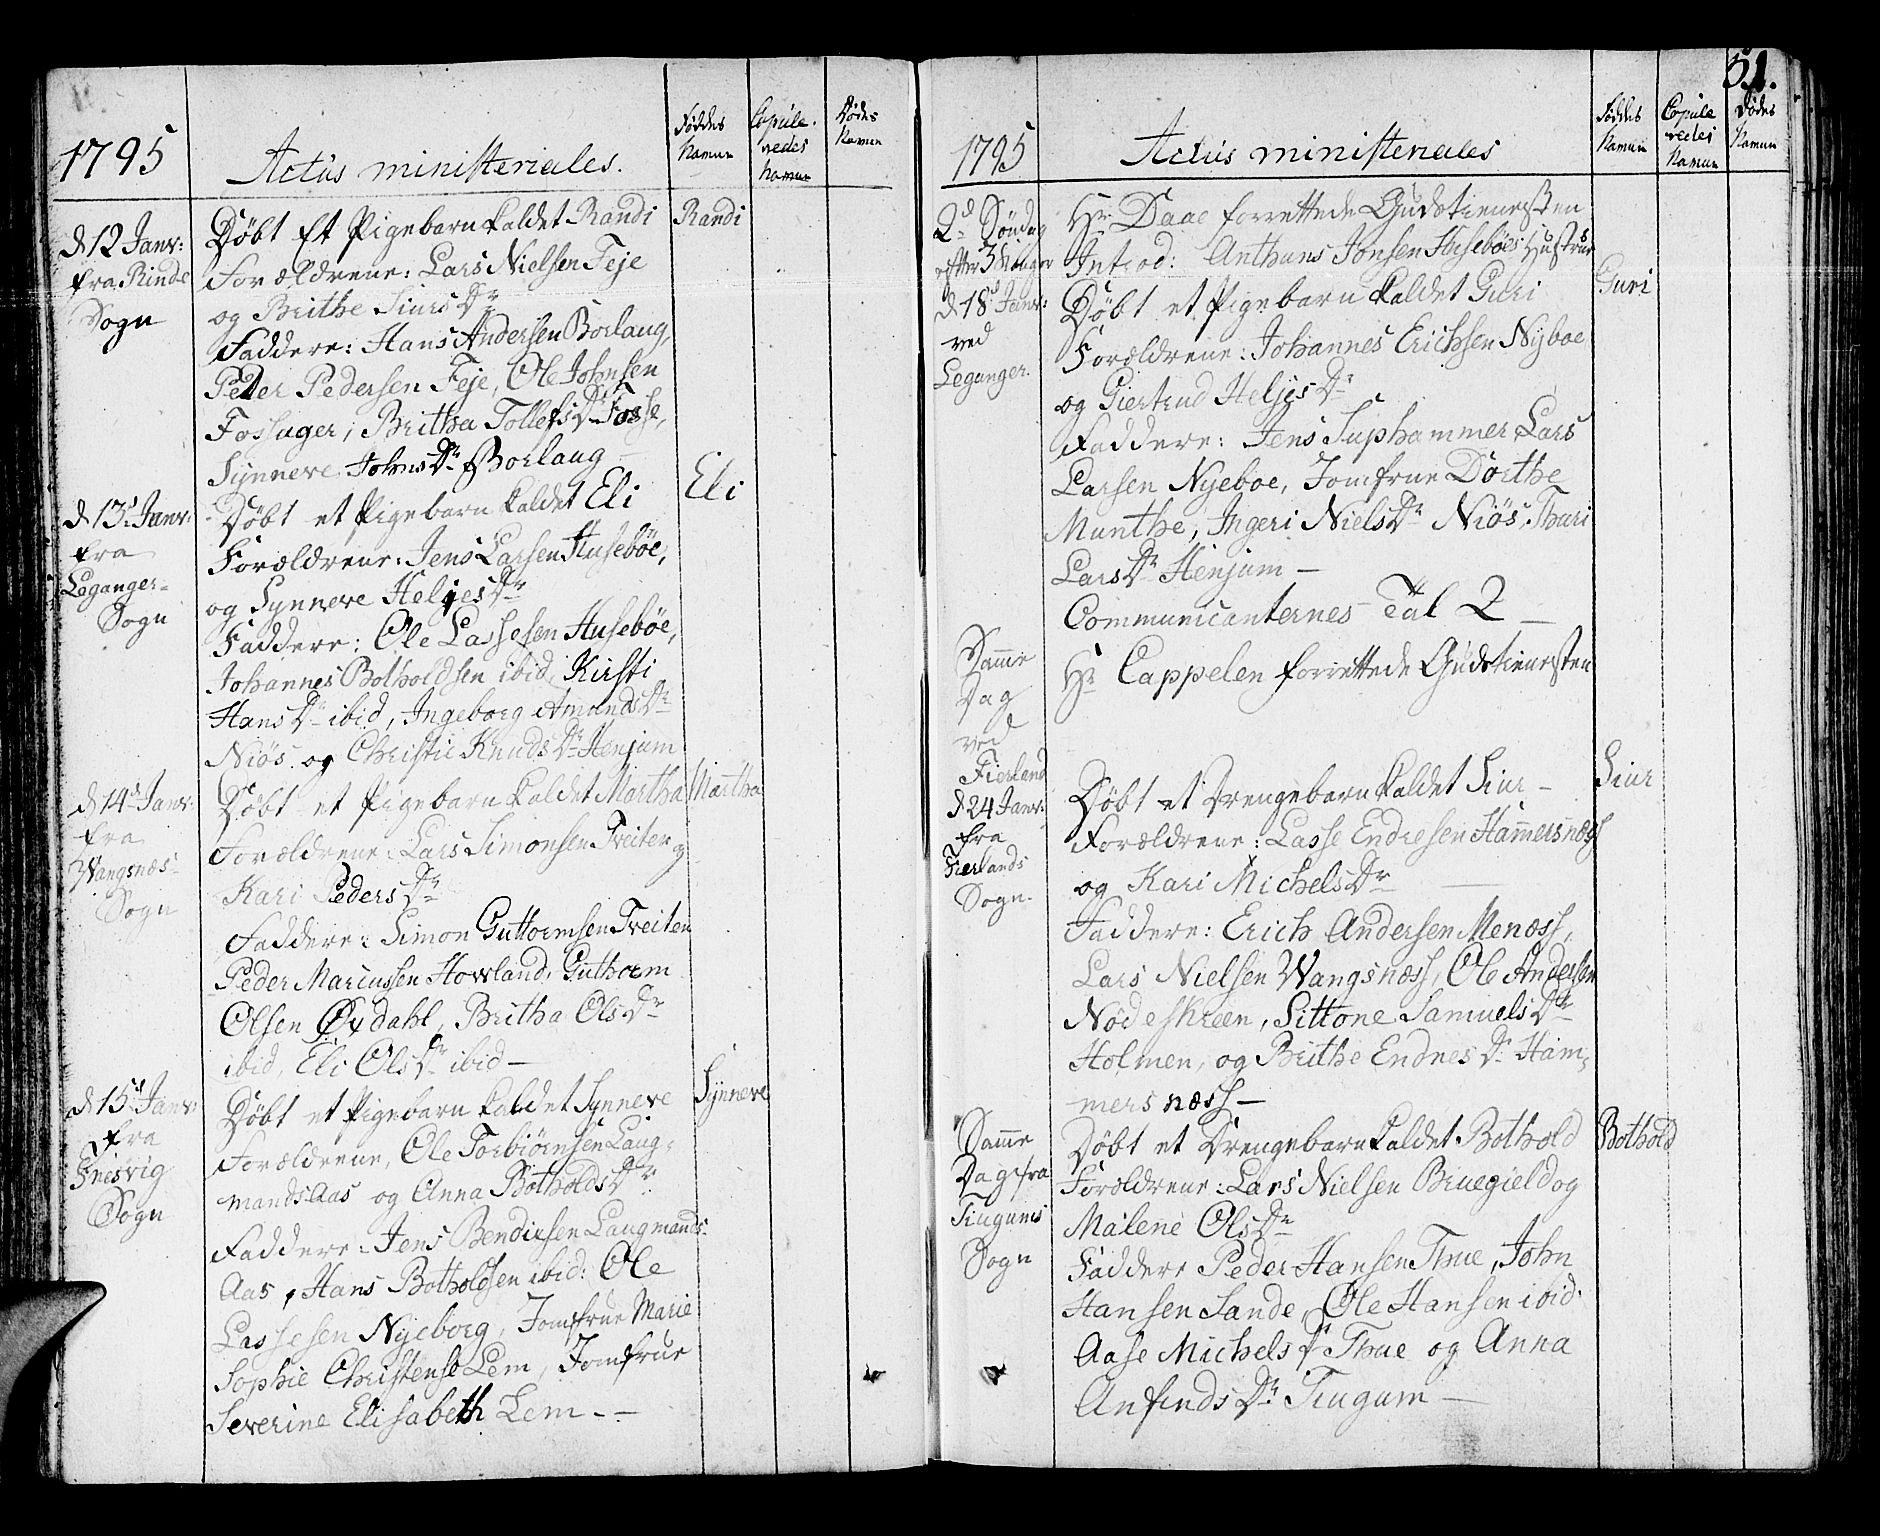 1795
Actus ministeriales.
Føddes Namen
Copule-
redes
Namen
Dødes
Namen
d 12 Janv:
fra Rinde
Sogn
Døbt Et Pigebarn kaldet Randi
Randi
Forældrene: Lars Nielsen Feje
og Brithe Siurs Dr
Faddere: Hans Andersen Borlaug,
Peder Pedersen Feje, Ole Johnsen
Fosshager, Britha Tollefs Dr Fosse,
Synneve Johns Dr Borlaug
d 13de Janv:
fra
Leganger-
Sogn
Døbt et Pigebarn kaldet Eli
Eli
Forældrene: Jens Larsen Husebøe,
og Synneve Heljes Dr
Faddere: Ole Lassesen Husebøe,
Johannes Botholdsen ibid, Kirsti
Hans Dr ibid, Ingeborg Amunds Dr
Niøs og Christie Knuds Dr Henjum
d 14de Janv:
fra
Wangsnes-
Sogn
Døbt et Pigebarn kaldet Martha
Martha
Forældrene: Lars Simonsen Treiten og
Kari Peders Dr
Faddere: Simon Guttormsen Treiten
Peder Marcussen Hovland, Guthorm
Olsen Øxdahl, Britha Ols Dr
ibid, Eli Ols Dr ibid —
d 15de Janv:
fra
Fresvig
Sogn
Døbt et Pigebarn kaldet Synneve
Synneve
Forældrene, Ole Torbiørnsen Laug-
mandsAas og Anna Botholds Dr
Faddere: Jens Bendixsen Laugmands-
Aas, Hans Botholdsen ibid: Ole
Lassesen Nyeborg, Jomfrue Marie
Sophie Christense Lem, Jomfrue
Severine Elisabeth Lem. —
51.
1795
Actus ministeriales
Føddes
Namen
Copule
redes
Namen
Dødes
Namen
2d Søndag
efter 3 Konger
d 18de Janv:
ved
Leganger.
Hr Daae forrettede Gudstienesten
Introd: Anthuns Jonsen Husebøes Hustrue
Døbt et Pigebarn kaldet Guri
Guri
Forældrene: Johannes Erichsen Nyboe
og Giertrud Heljes Dr
Faddere: Jens Suphammer, Lars
Larsen Nyeboe, Jomfrue Dorthe
Munthe, Ingeri Niels Dr Niøs, Thuri
Lars Dr Henjum —
Communicanternes Tal 2 —
Samme
Dag
ved
Fierland
Hr Cappelen forrettede Gudstienesten
d 24 Janv:
fra
Fierlands
Sogn.
Døbt et Drengebarn kaldet Siur —
Siur
Forældrene: Lasse Endresen Hammersnæss
og Kari Michels Dr —
Faddere: Erich Andersen Menæss,
Lars Nielsen Wangsnæss, Ole Andersen
Nodeskreen, Sittone Samuels Dr
Holmen, og Brithe Endres Dr Ham-
mersnæss —
Samme
Dag fra
Tiugums
Sogn
Døbt et Drengebarn kaldet Bothold
Bothold
Forældrene: Lars Nielsen Bruegield og
Malene Ols Dr
Faddere Peder Hansen Thue, John
Hansen Sande, Ole Hansen ibid.
Aase Michels Dr Thue og Anna
Anfinds Dr Tiugum —